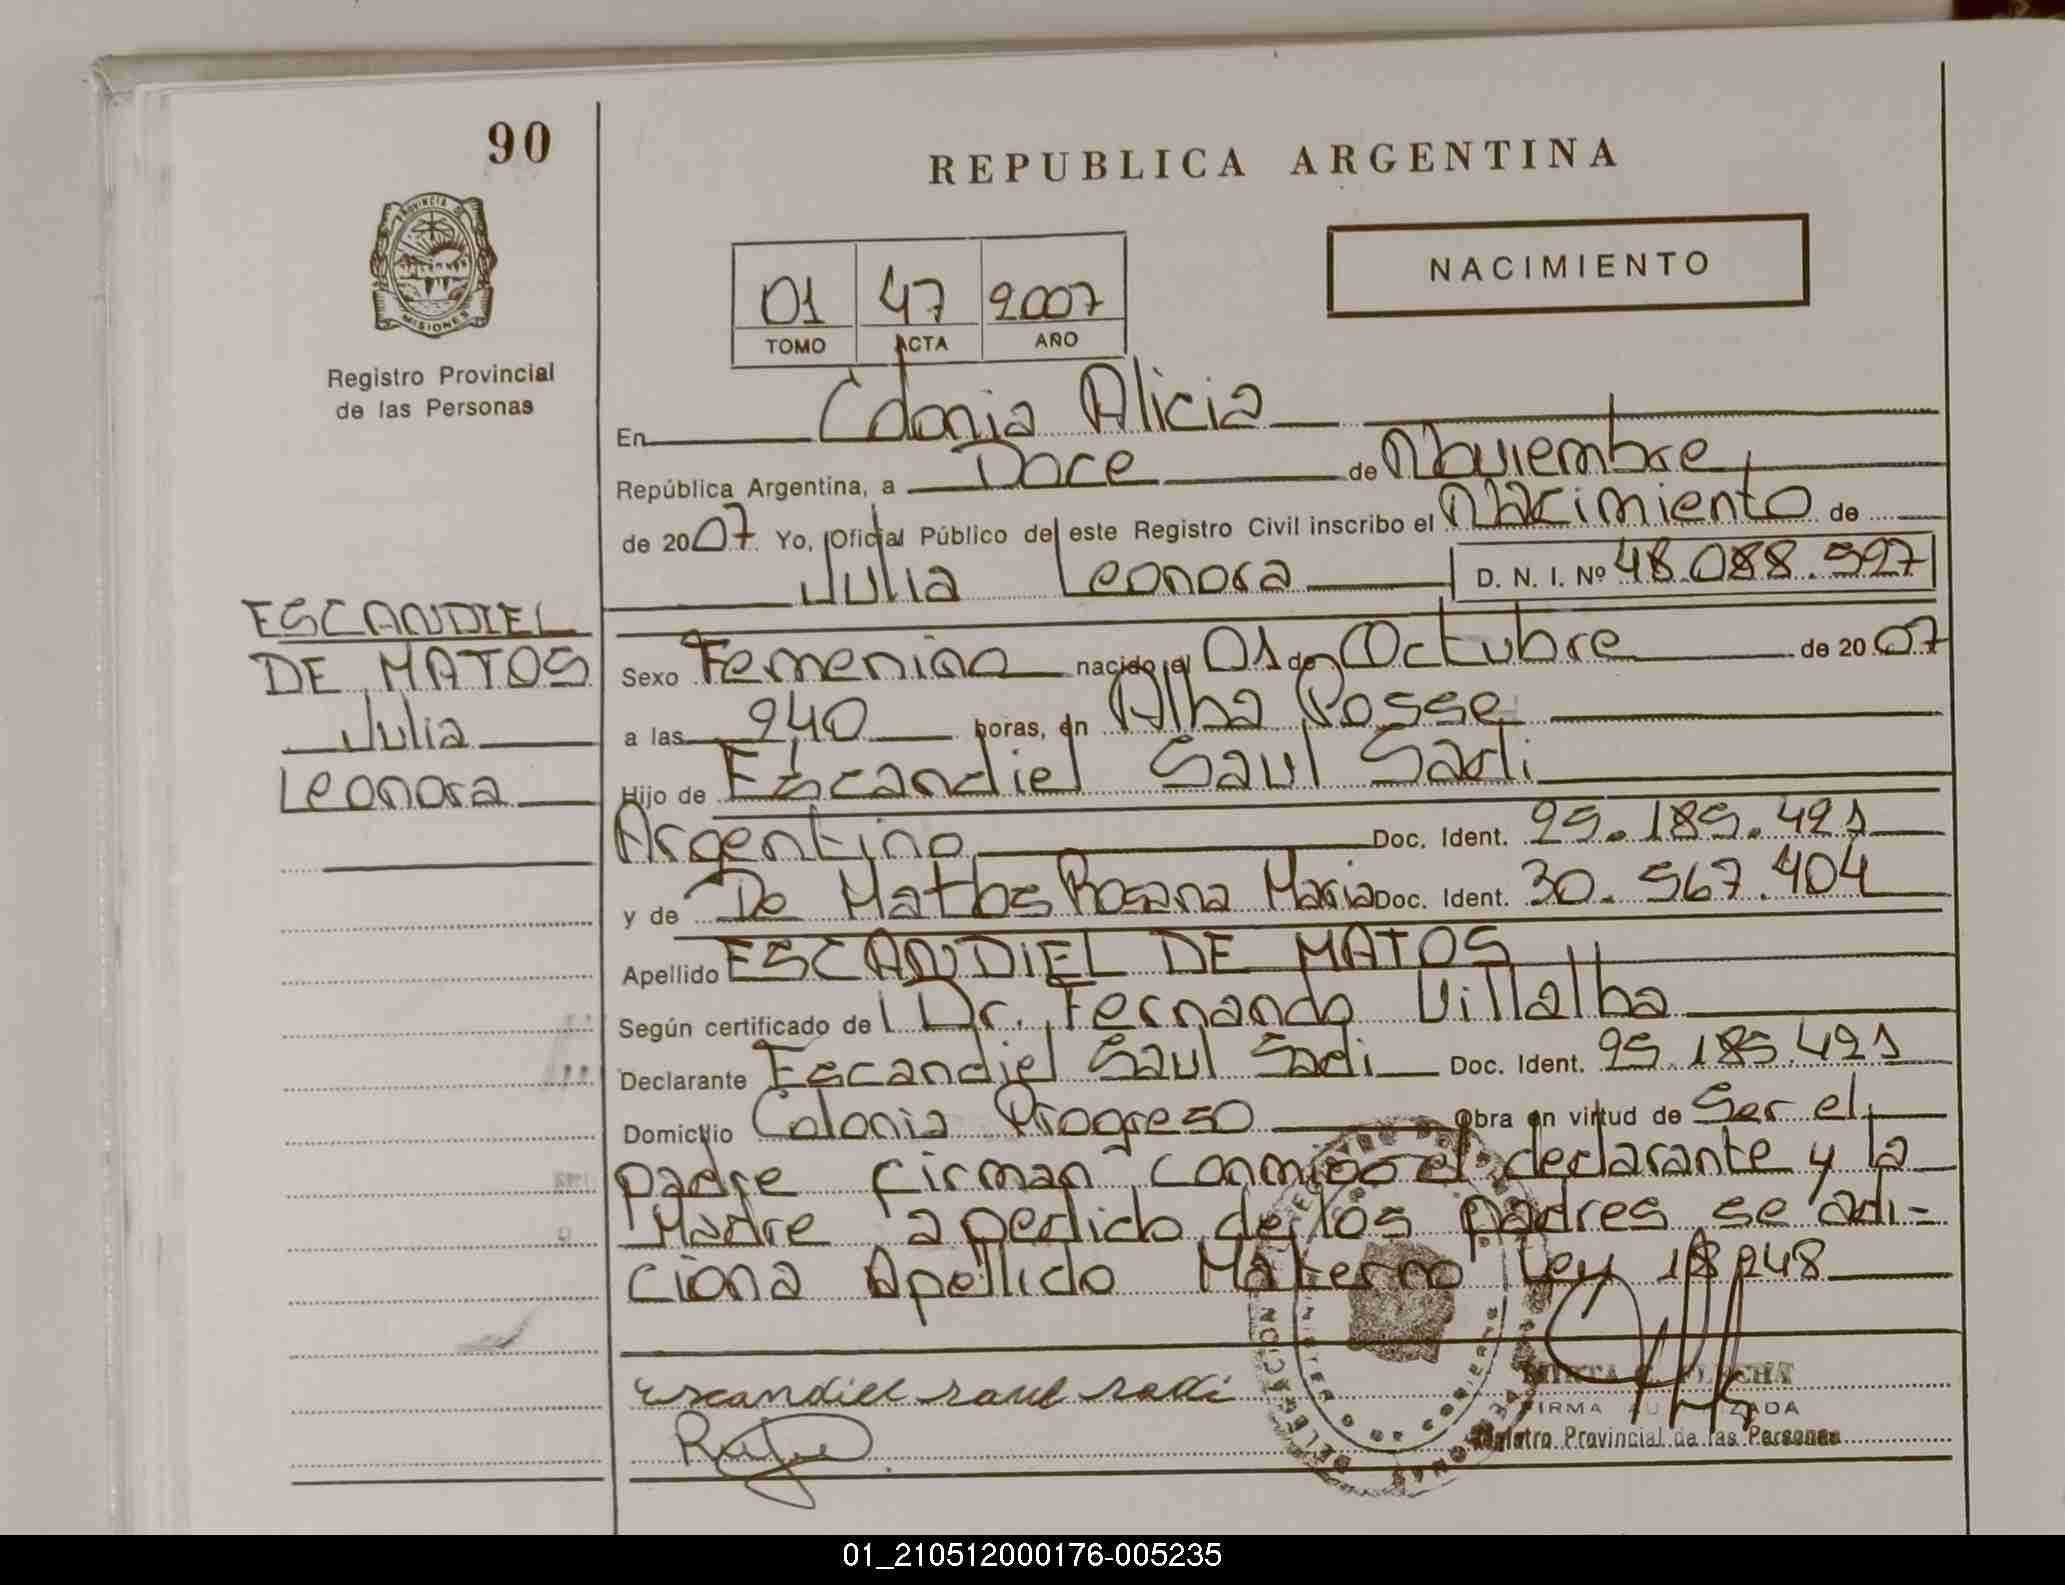 90
REPUBLICA ARGENTINA
PROVINCIA DE
MISIONES
Registro Provincial
de las Personas
NACIMIENTO
01 47 2007
TOMO ACTA AÑO
En Colonia Alicia
República Argentina, a Doce de Noviembre
de 2007 Yo, Oficial Público de este Registro Civil inscribo el Nacimiento de
Julia Leonora D. N. I. Nº 48.088.597
ESCANDIEL
DE MATOS
Julia
Leonora
Sexo Femenino nacido el 01 de Octubre de 2007
a las 940 horas, en Alba Posse
Hijo de Escandiel Saul Sadi
Argentino Doc. Ident. 25.185.421
y de De Matos Rosana Maria Doc. Ident. 30.567.404
Apellido ESCANDIEL DE MATOS
Según certificado de Dr. Fernando Villalba
Declarante Escandiel Saul Sadi Doc. Ident. 25.185.421
Domicilio Colonia Progreso Obra en virtud de Ser el
padre firman conmigo el declarante y la
Madre a pedido de los padres se adi-
ciona Apellido Materno Ley 18248
Escandiel saul sadi
FIRMA AUTORIZADA
Registro Provincial de las Personas
01_210512000176-005235